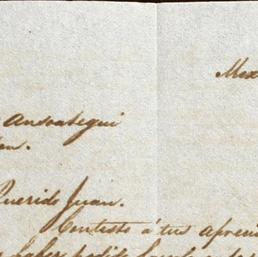 Mex
Ansoategui
Querido Juan.
Contesto á tus aprecia
haber podido